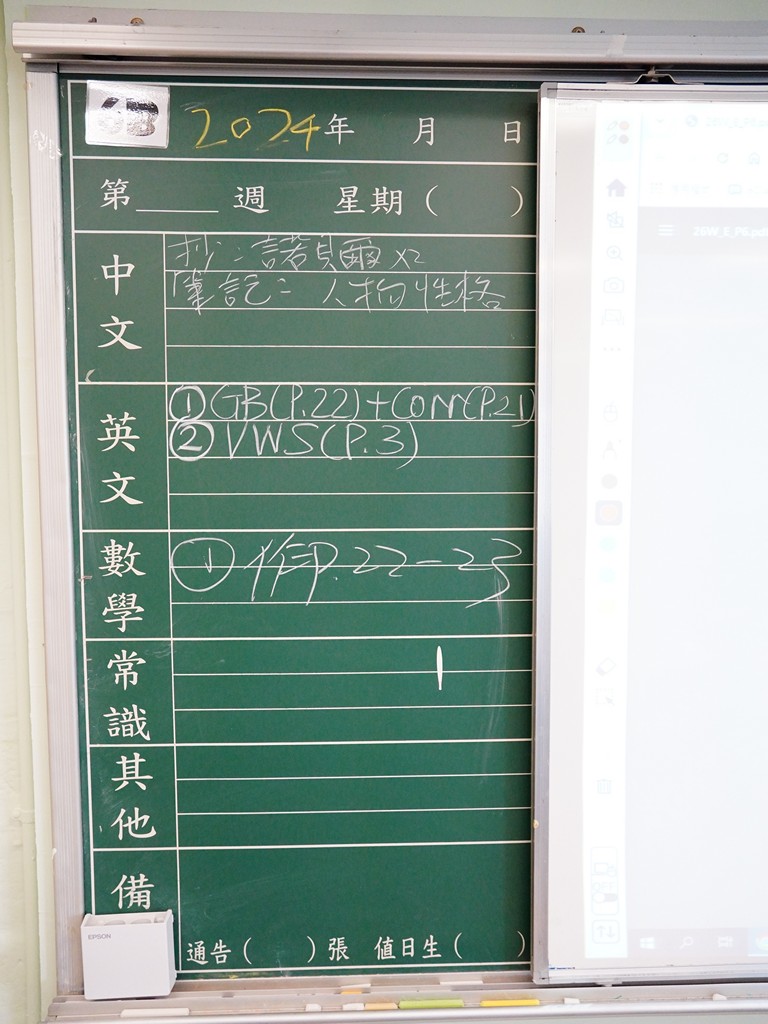 6B 2024年 月 日
第 週 星期( )
中文
抄:諾貝爾x2
筆記:人物性格
英文
①GB(P.22)+Com(P.21)
②VWS(P.3)
數學
①作P.22-23
常識
其他
備
EPSON
通告( )張 值日生( )
26W_E_P6.pd